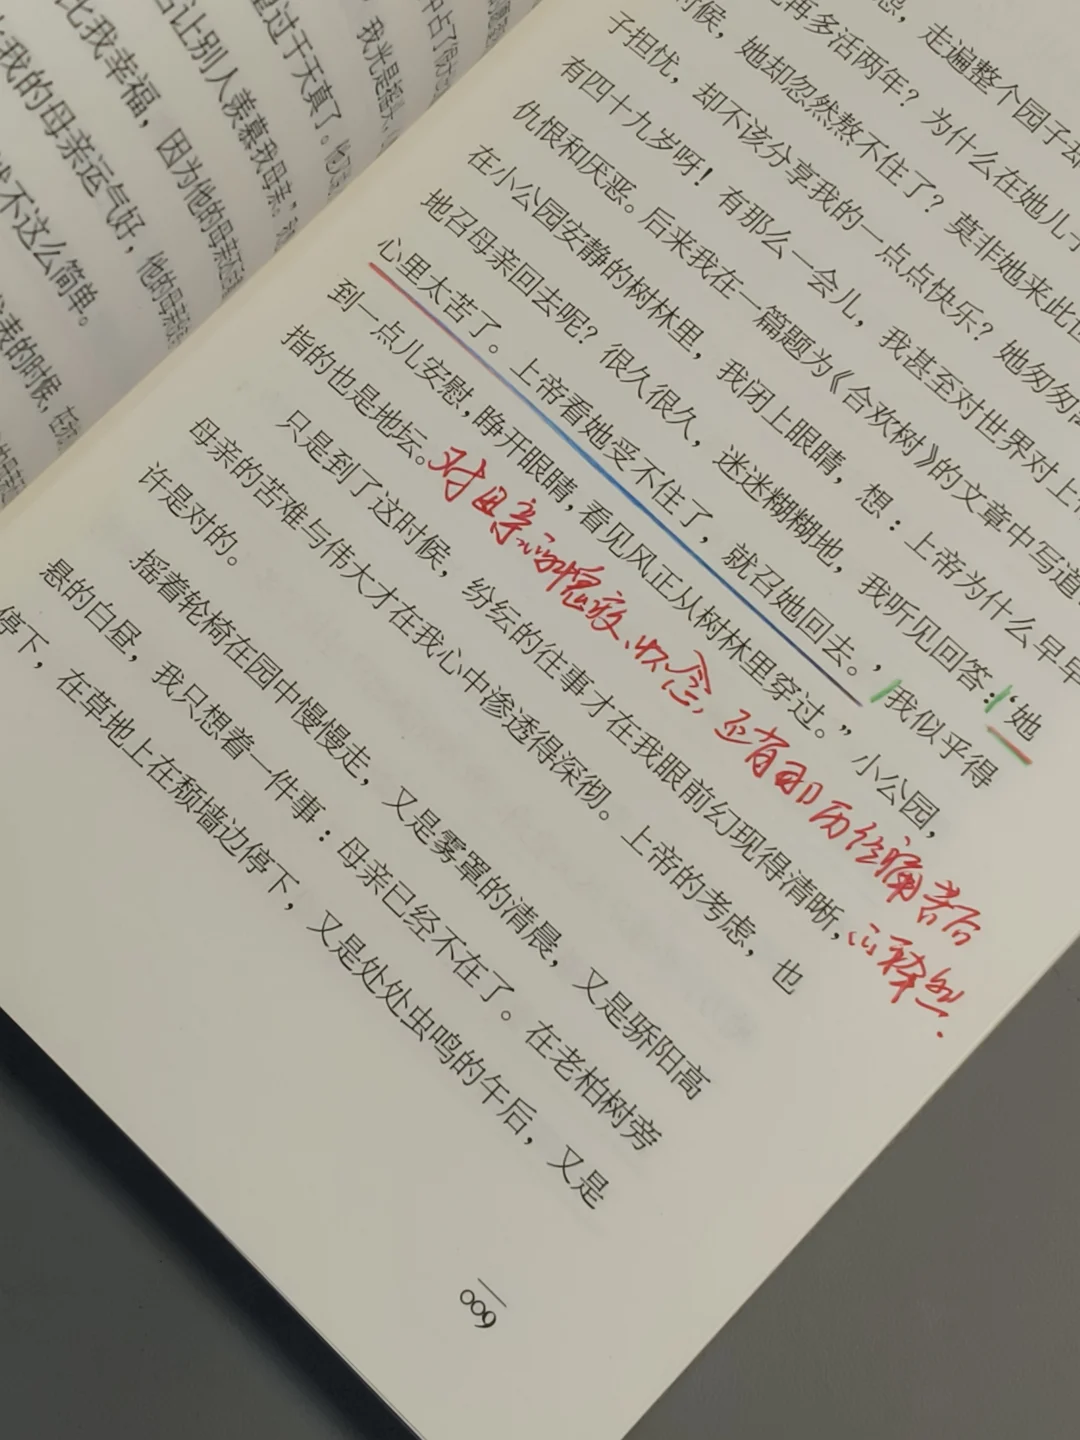 比我幸福，因为他的母亲还
我的母亲运气好，他的母亲
不这么简单。
让别人羡慕我母亲。
过于天真了。他
我光是
的时候，在
走遍整个园子却
再多活两年？为什么在她儿子
时候，她却忽然熬不住了？莫非她来此世
子担忧，却不该分享我的一点点快乐？她匆匆
有四十九岁呀！有那么一会儿，我甚至对世界对上
仇恨和厌恶。后来我在一篇题为《合欢树》的文章中写道
在小公园安静的树林里，我闭上眼睛，想：上帝为什么早早
地召母亲回去呢？很久很久，迷迷糊糊地，我听见回答：‘她
心里太苦了。上帝看她受不住了，就召她回去。’我似乎得
到一点儿安慰，睁开眼睛，看见风正从树林里穿过。”小公园，
指的也是地坛。
对母亲的愧疚、怀念，还有那历经痛苦后
的释然.
只是到了这时候，纷纭的往事才在我眼前幻现得清晰，
母亲的苦难与伟大才在我心中渗透得深彻。上帝的考虑，也
许是对的。
摇着轮椅在园中慢慢走，又是雾罩的清晨，又是骄阳高
悬的白昼，我只想着一件事：母亲已经不在了。在老柏树旁
停下，在草地上在颓墙边停下，又是处处虫鸣的午后，又是
009